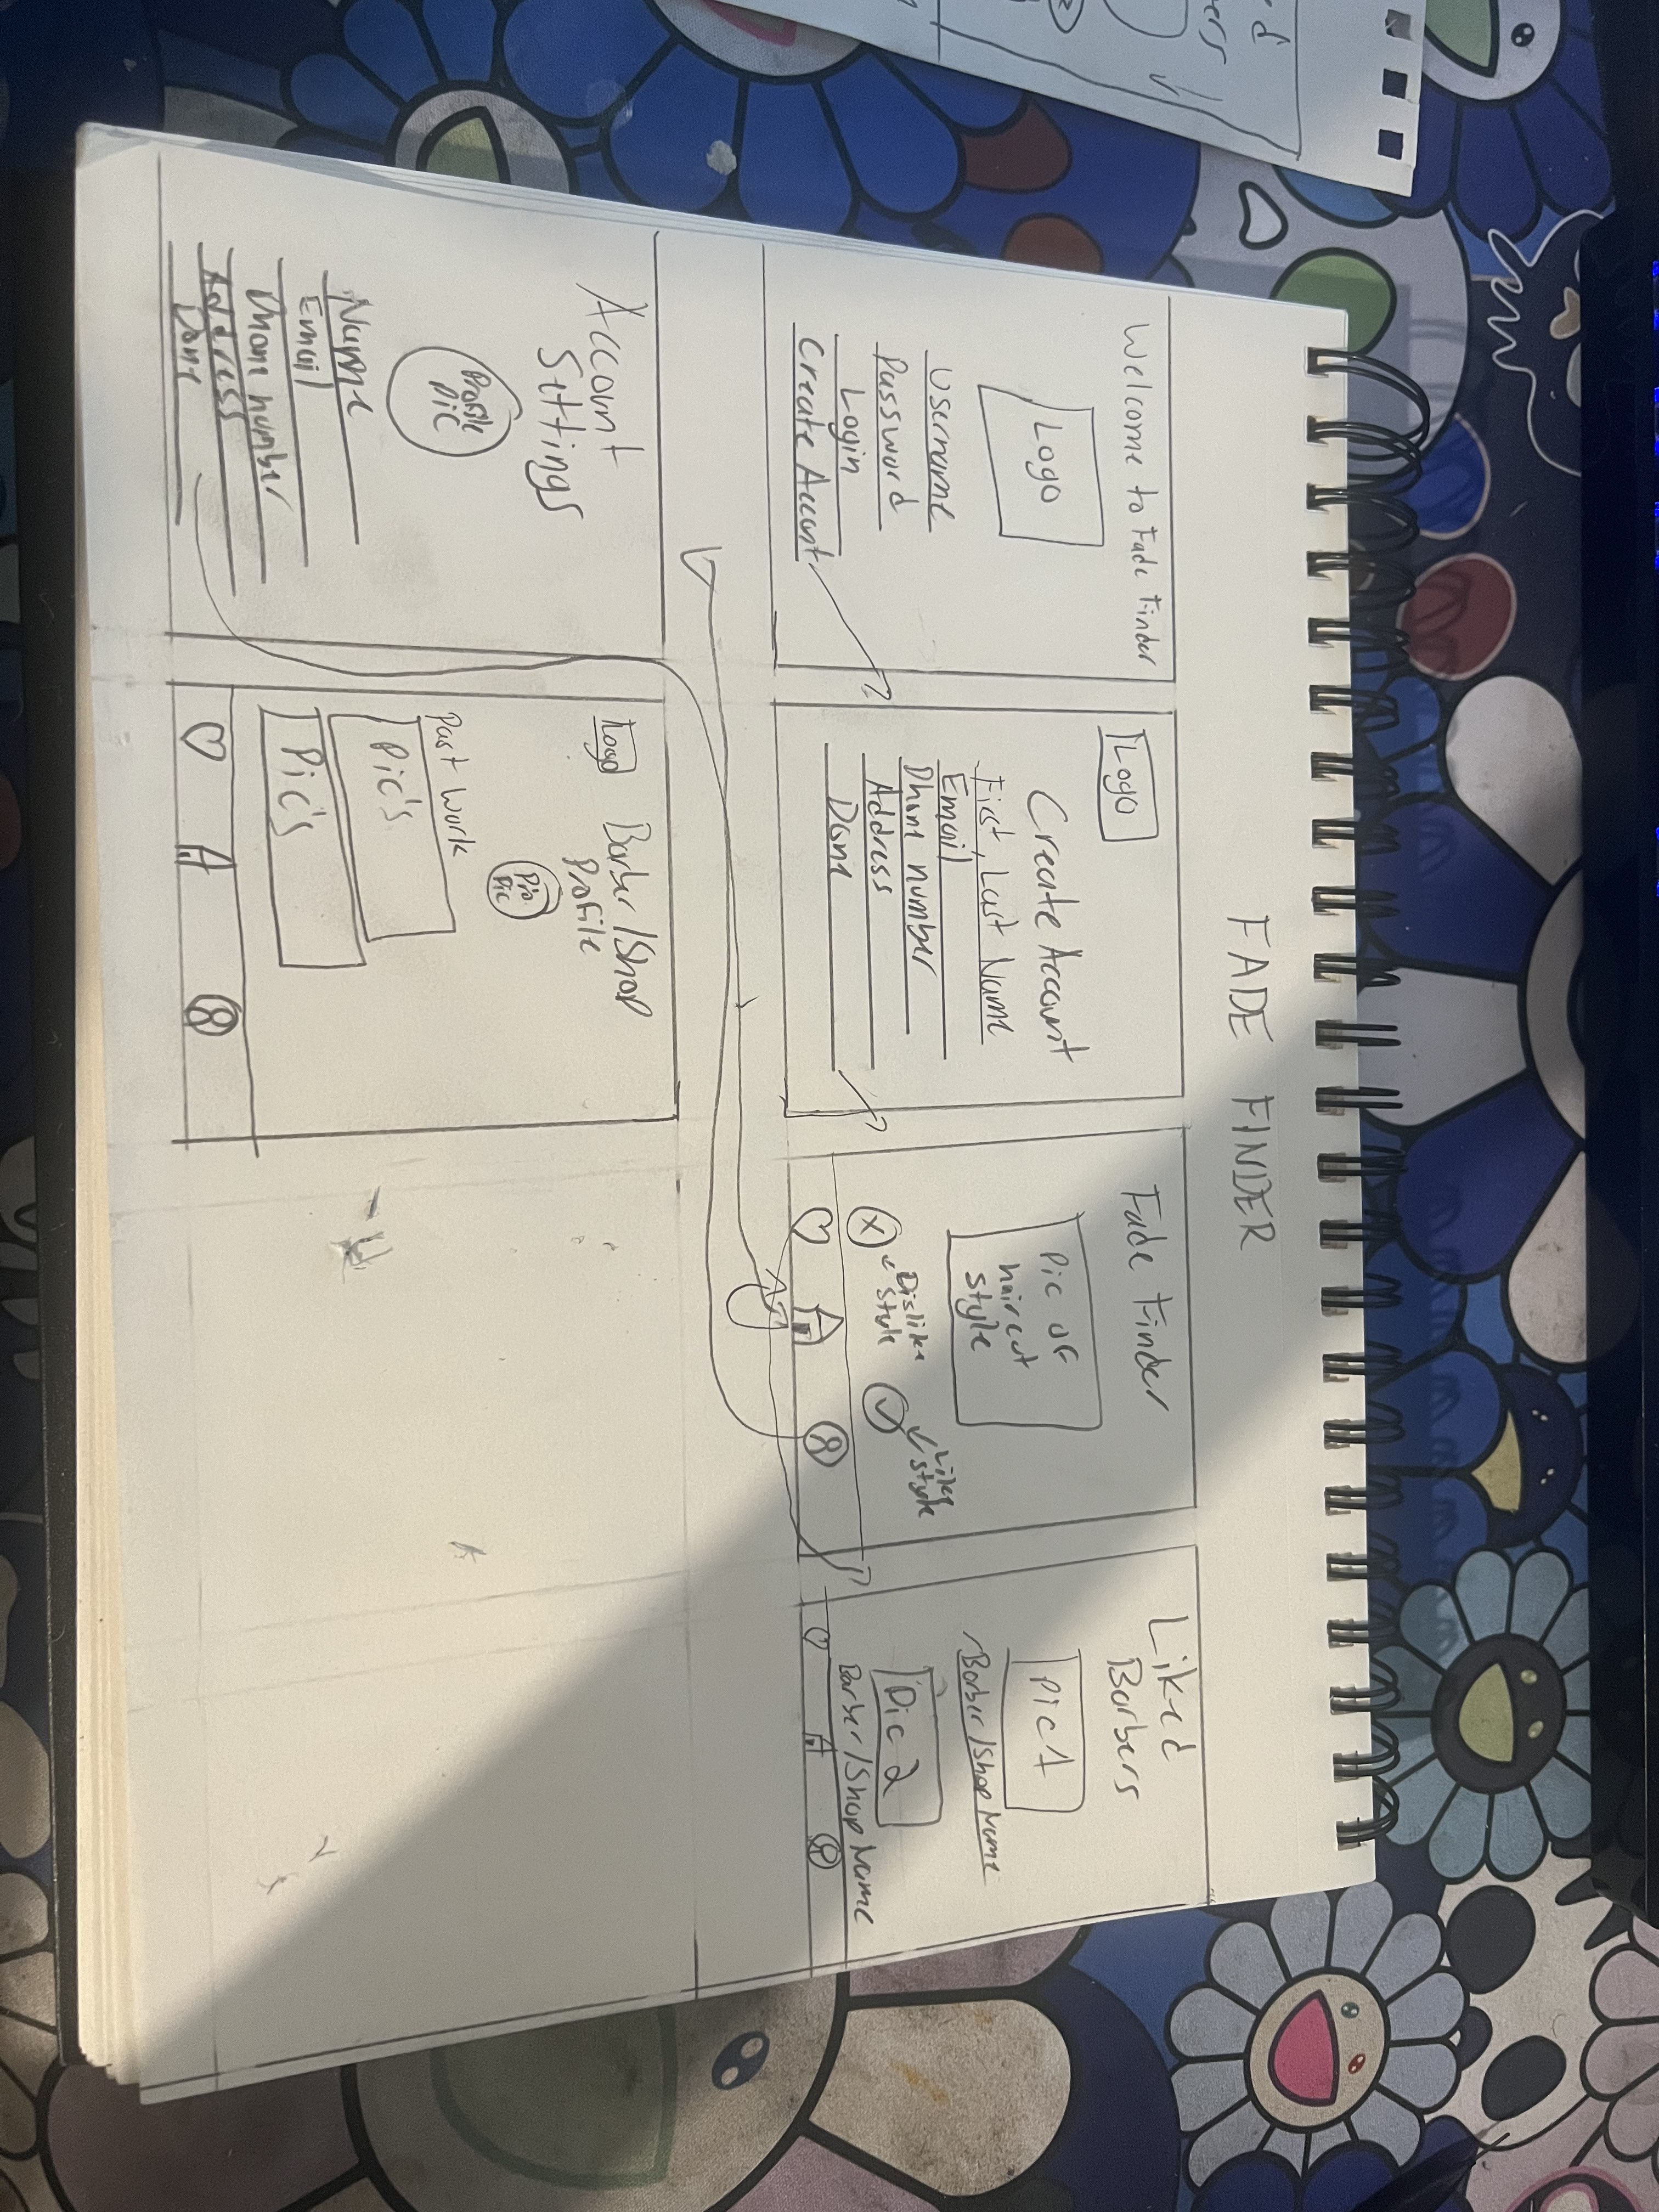 FADE FINDER
Welcome to Fade Finder
Logo
Username
Password
Login
Create Accont
Logo
Create Account
First, Last Name
Email
Phone number
Address
Done
Fade Finder
Pic of
haircut
style
Dislike
style
Like
style
Liked
Barbers
Pic 1
Barber/Shop Name
Pic 2
Barber/Shop Name
Account
Settings
Profile
Pic
Name
Email
Phone number
Address
Done
Logo
Barber/Shop
Profile
Pro
Pic
Past Work
Pic's
Pic's